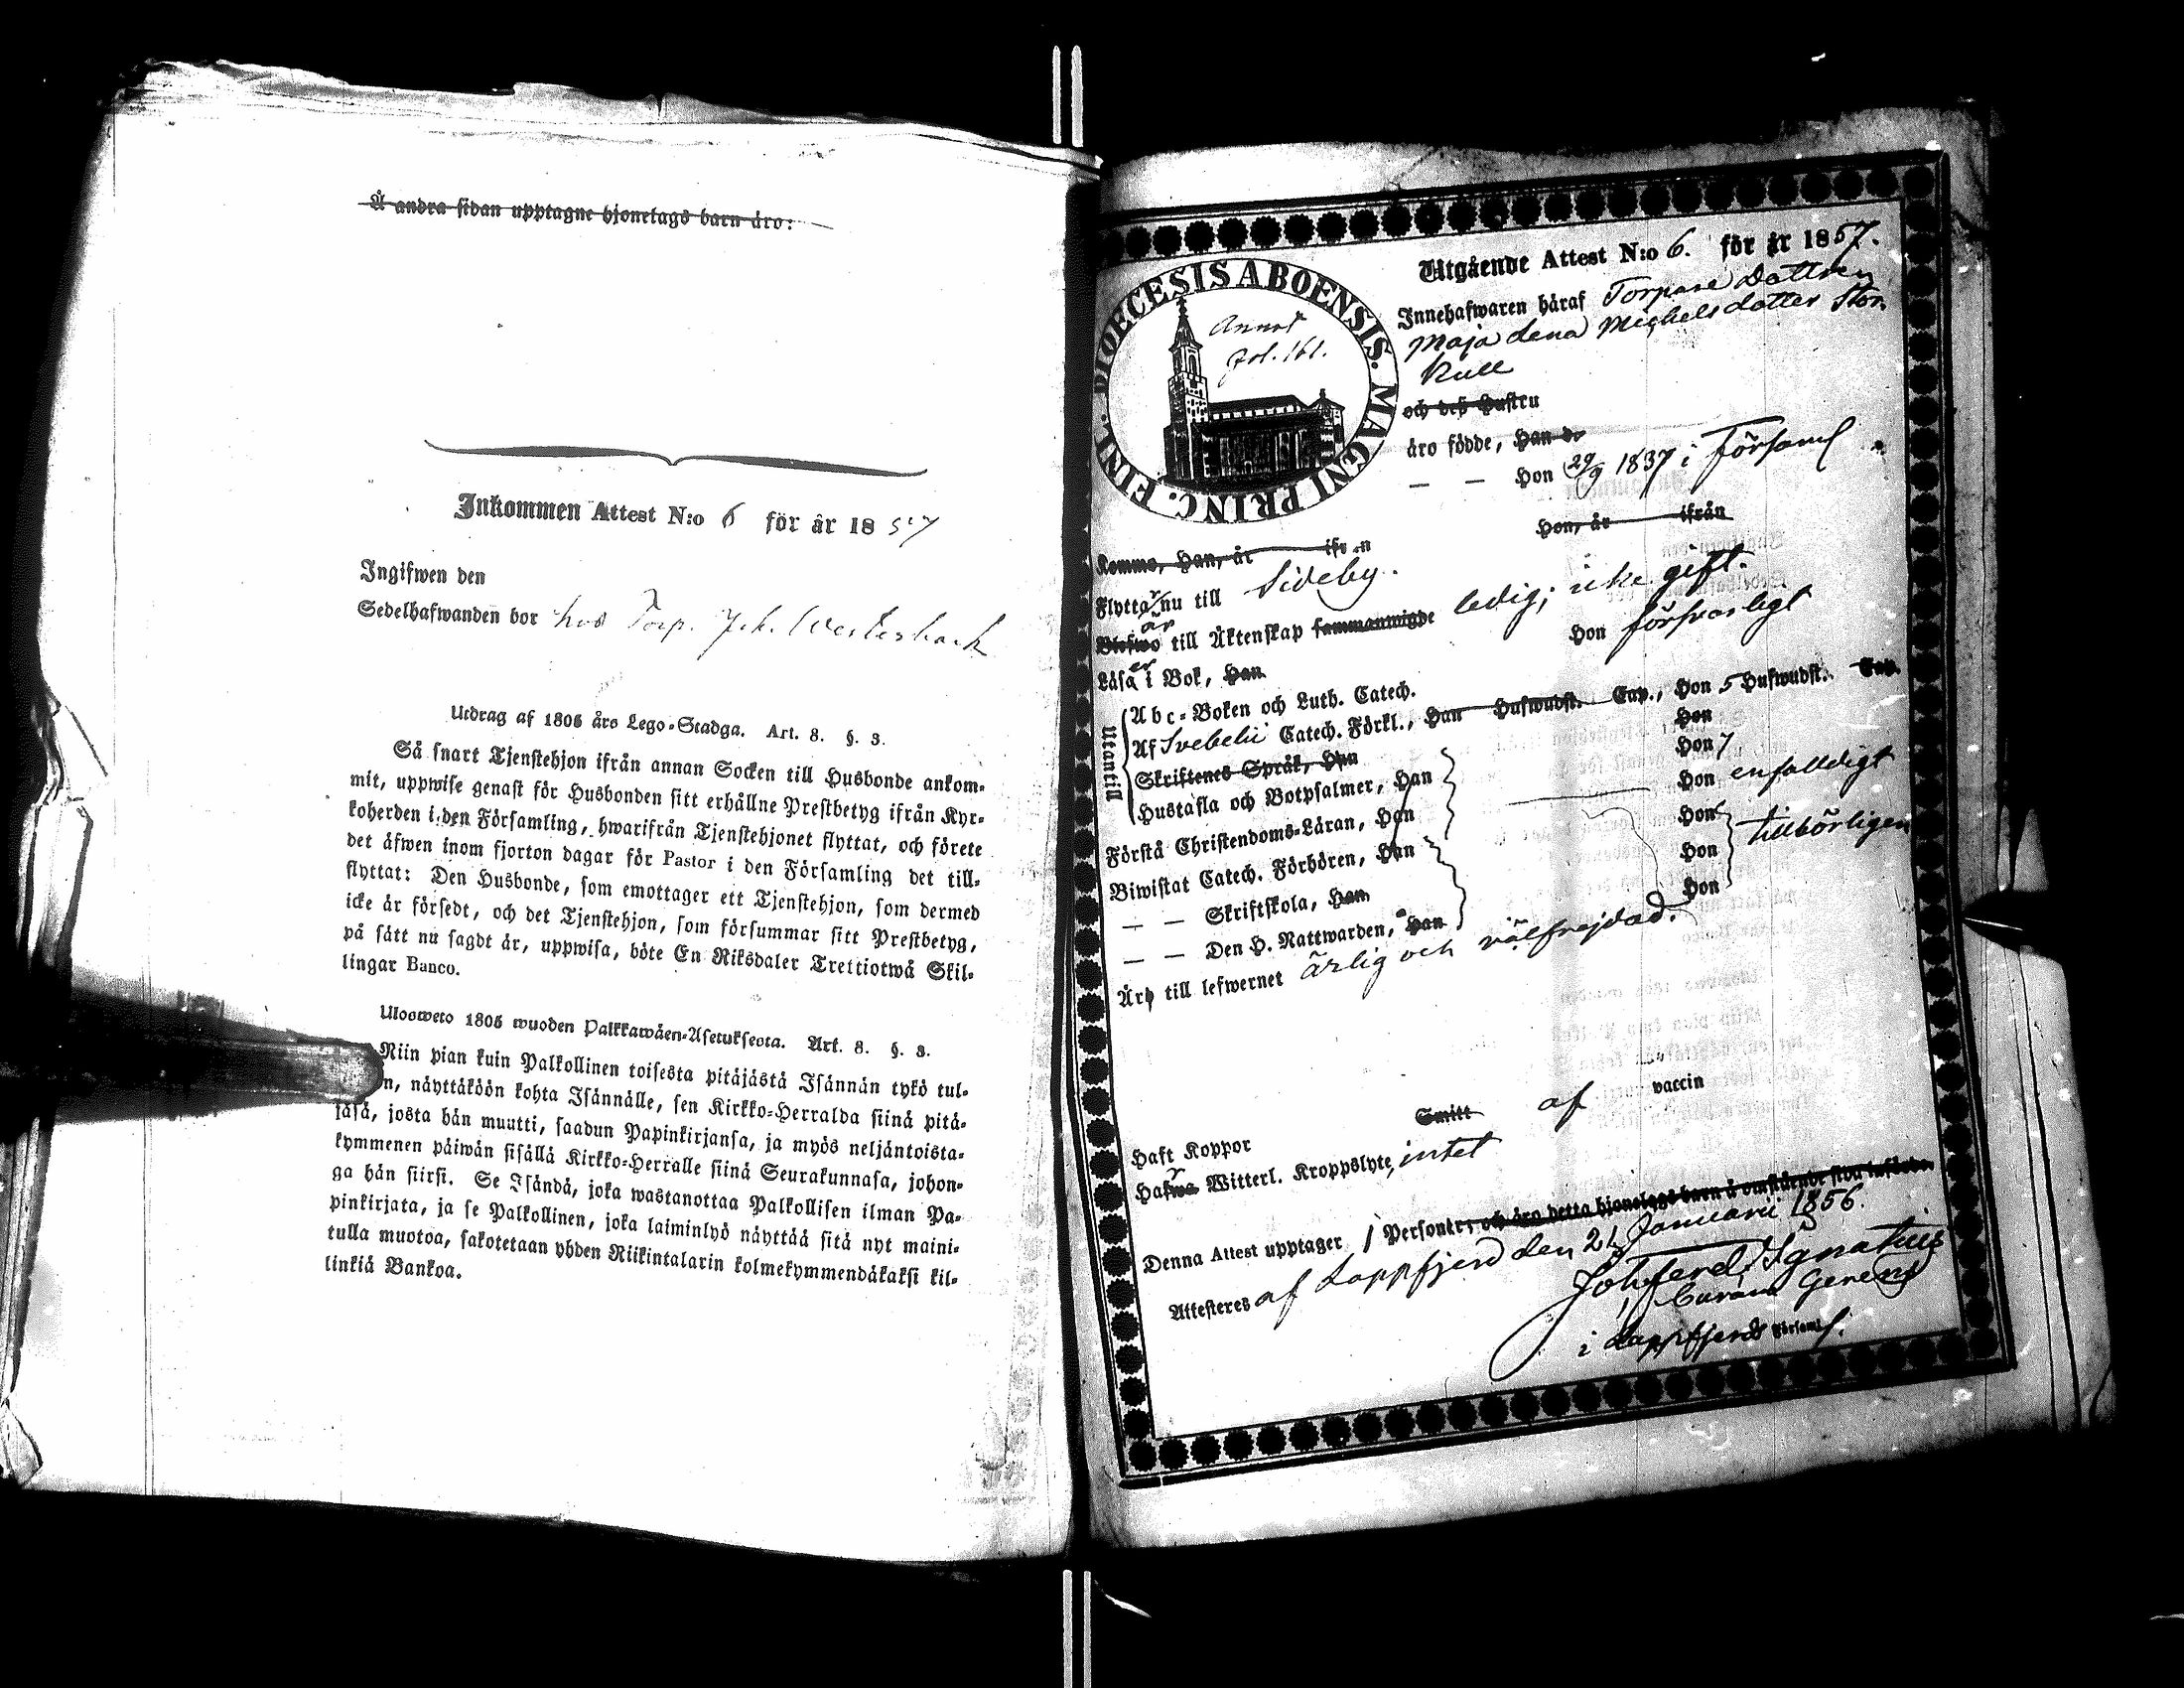 Å andra sidan upptagne hjonelags barn äro:
Inkommen Attest N:o 6 för år 1857
Ingifwen den
Sedelhafwanden bor hos Torp. Joh. Westerback
Utdrag af 1805 års Lego-Stadga. Art. 8. §. 3.
Så snart Tjenstehjon ifrån annan Socken till Husbonde ankom-
mit, uppwise genast för Husbonden sitt erhållne Prestbetyg ifrån Kyr-
koherden i den Församling, hwarifrån Tjenstehjonet flyttat, och förete
det äfwen inom fjorton dagar för Pastor i den Församling det till-
flyttat: Den Husbonde, som emottager ett Tjenstehjon, som dermed
icke är försedt, och det Tjenstehjon, som försummar sitt Prestbetyg,
på sätt nu sagdt är, uppwisa, böte En Riksdaler Trettiotwå Skil-
lingar Banco.
Ulosweto 1805 wuoden Palkkawäen-Asetuksesta. Art. 8. §. 3.
Niin pian kuin Palkollinen toisesta pitäjästä Isännän tykö tul-
n, näyttäköön kohta Isännälle, sen Kirkko-Herralda siinä pitä-
jäsä, josta hän muutti, saadun Papinkirjansa, ja myös neljäntoista-
kymmenen päiwän sisällä Kirkko-Herralle siinä Seurakunnasa, johon-
ga hän siirsi. Se Isändä, joka wastanottaa Palkollisen ilman Pa-
pinkirjata, ja se Palkollinen, joka laiminlyö näyttää sitä nyt maini-
tulla muotoa, sakotetaan yhden Riikintalarin kolmekymmendäkaksi kil-
linkiä Bankoa.
DIOECESIS ABOENSIS. MAGNI PRINC. FINL.
Annot
fol. 161.
Utgående Attest N:o 6. för år 1857.
Innehafwaren häraf Torpare Dottren
Maja Lena Michelsdotter Stor
kull
och deß Hustru
äro födde, Han de
— — Hon 29/9 1837 i Församl
Komme, Han, år ifrån Hon, år ifrån
Flyttar nu till Sideby.
Blefwo är till Äktenskap sammanwigde ledig; icke gift.
Läsa er i Bok, Han Hon försvarligt
Utantill
Abc-Boken och Luth. Catech.
Af Svebelii Catech. Förkl., Han Hufwudst. Cap., Hon 5 Hufwudst. Cap.
Skriftenes Språk, Han Hon
Hustafla och Botpsalmer, Han Hon 7
Förstå Christendoms-Läran, Han Hon enfaldigt
Biwistat Catech. Förhören, Han Hon
— — Skriftskola, Han Hon tillbörligen
— — Den H. Nattwarden, Han Hon
Äro till lefwernet ärlig och välfrejdad.
Haft Koppor Smitt af vaccin
Hafwa r Witterl. Kroppslyte intet
Denna Attest upptager 1 Personer: och äro detta hjonelags barn å omstående sida införde.
Attesteres af Lappfjerd den 21 Januarii 1856.
Joh. Ferd. Ignatius
Curam Gerens
i Lappfjerds Församl.